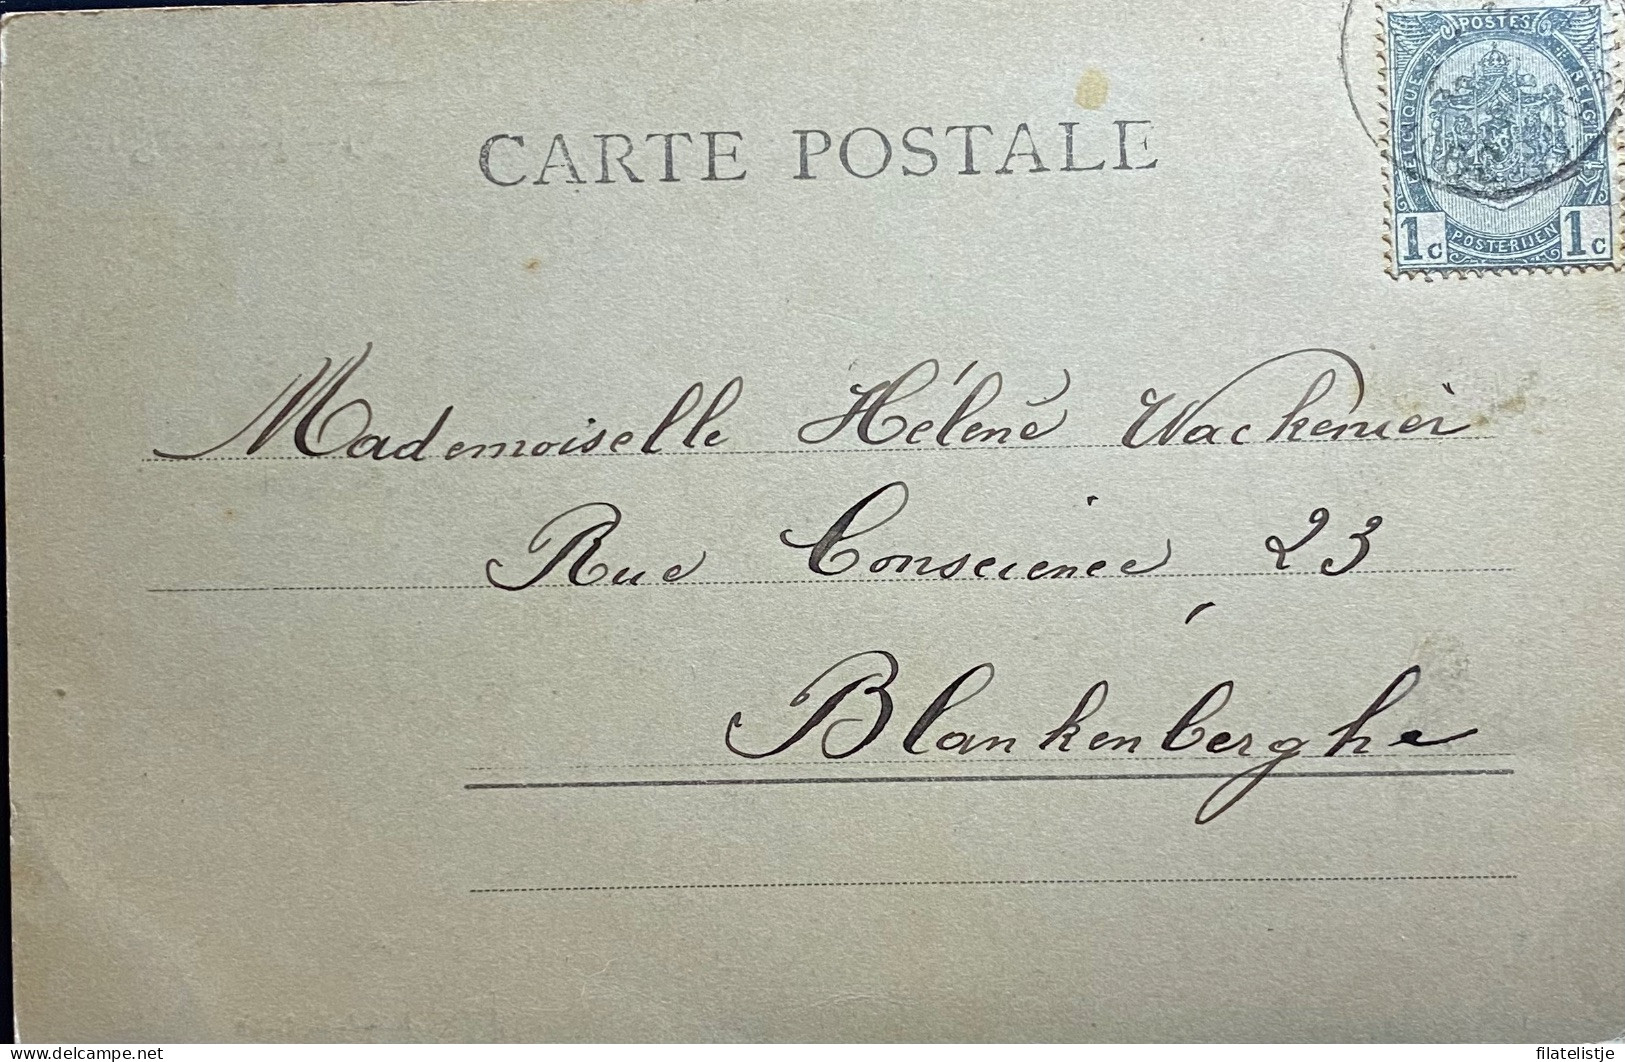 CARTE POSTALE
POSTES
BELGIQUE
BELGIË
1c
POSTERIJEN
1c
Mademoiselle Hélène Wackenier
Rue Conscience 23
Blankenberghe
delcampe.net
filatelistje